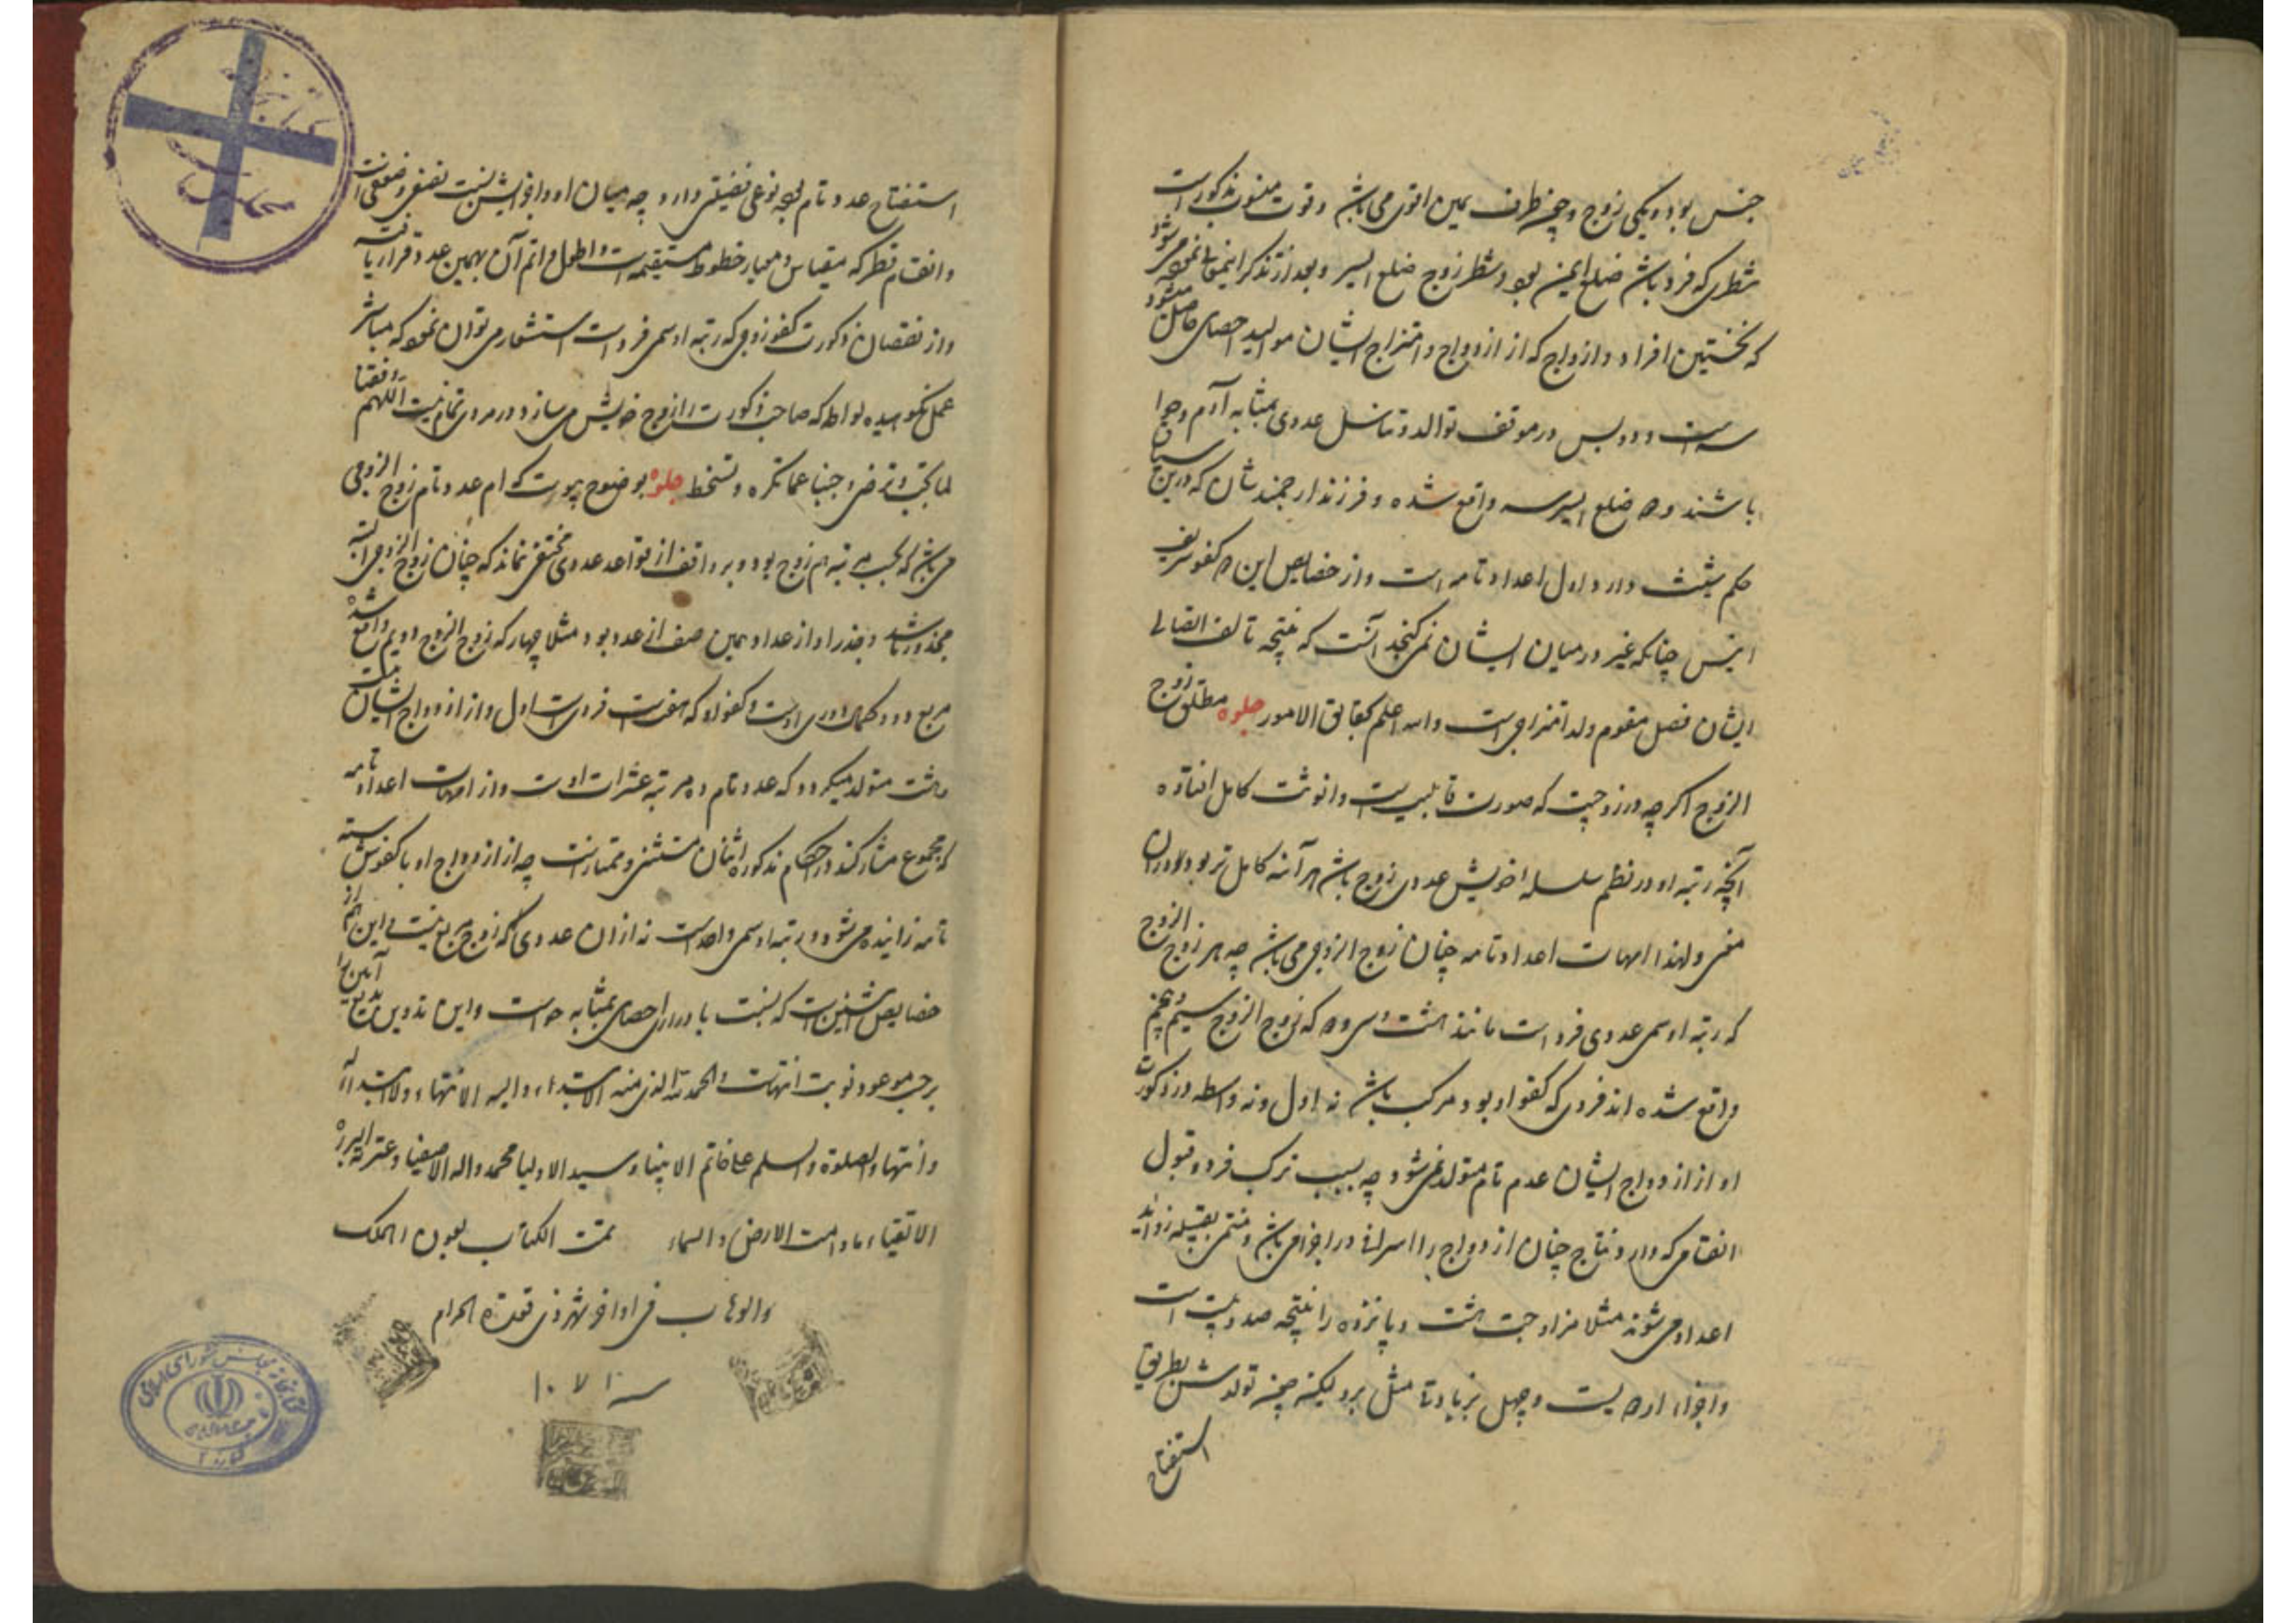 جنس بود و یکی زوج و چون طرف یمین اقوی می باشد و قوت منسوب بذکورت است
شطری که فرد باشد ضلع ایمن بود و شطر زوج ضلع ایسر و بعد از تذکر اینمعانی
که نخستین افراد و ازواج که از ازدواج و امتزاج ایشان موالید احصای حاصل میشود
سه است و دو پس در موقف توالد و تناسل عددی بمثابه آدم و حوا
باشند و ه ضلع ایسر سه واقع شده و فرزند ارجمند شان که درین
حکم شیث دارد اول اعداد تامه است و از خصایص این کفو شریف
چنانکه غیر در میان ایشان نمی کنجد آنست که نتیجه تالف اتصالی
ایشان فصل مقوم ولد امتزاجی است والله اعلم بحقایق الامور جلوه مطلق زوج
الزوج اکر چه در زوجیت که صورت قابلیت است و انوثت کامل افتاده
آنچه رتبه او در نظم سلسله اخویش عددی زوج باشد هر آینه کامل تر بود
ولهذا امهات اعداد تامه چنان زوج الزوجی می باشد چه هر زوج الزوج
که رتبه او سمی عددی فرد است مانند هشت و سی و دو که زوج الزوج سیم و پنجم
واقع شده اند فردی که کفو او بود مرکب باشد نه اول و نه واسطه در ذکورت
او از ازدواج ایشان عدم تام متولد نمی شود چه بسبب ترکب فرد و قبول
انقسامی که دارد نتاج چنان ازدواج را اسرافی در اجزا می باشد و منتمی بقبیله زواید
اعداد می شوند مثلا مزاوجت هشت و پانزده را نتیجه صد و بیست است
واجزاء او دویست و چهل بزیادتا مثل برو لیکن چون تولدش بطریق
استفتاح
استفتاح عدد تام بوجه نوعی فضیلتی دارد چه میان او و اجزایش نسبت نصفی و ضعفی است
و انقسام قطر که مقیاس و معیار خطوط مستقیمه است و اطول و اتم آن بهمین عدد قرار یافته
و از نقصان ذکورت کفو زوجی که رتبه او سمی فرد است استشعار می توان نمود که مباشر
عمل نکوهیده لواطه که صاحب ذکورت را زوج خویش می سازد در مردی تمام نیست اللهم وفقنا
لما تحب و ترضی و جنبنا عما تکره و تسخط جلوه بوضوح پیوست که ام عدد تام زوج الزوجی
می باشد که بحسب مرتبه هم زوج بود و بر واقف از قواعد عددی مختفی نماند که چنان زوج الزوجی البته
مجذور باشد و جذر او از اعداد همین صف از عدد بود مثلا چهار که زوج الزوج دویم واقع شده
مربع دو و کفو او که هفت است فردیست اول و از ازدواج ایشان
هشت متولد میکردد که عدد تام در مرتبه عشرات اوست و از امهات اعداد تامه
که مجموع مشارکند در احکام مذکوره اثنان مستثنی و ممتاز است چه از ازدواج او با کفوش سته
تامه زاینده می شود و رتبه او سمی واحد است نه از آن عددی که زوج مربع نیست و این هم از
خصایص اثنین است که نسبت با ذراری احصای بمثابه حواست و این تدوین بدیع آیین را
بر حسب موعود نوبت انتهاست والحمد لله الذی منه الابتداء والیه الانتهاء ولا ابتداء له
ولا انتهاء والصلوة والسلم علی خاتم الانبیاء وسید الاولیا محمد واله الاصفیا وعترته البررة
الاتقیاء ما دامت الارض والسماء تمت الکتاب بعون الملک
الوهاب فی اواخر شهر ذی قعدة الحرام
سنه ۱۰۷۱
کتابخانه مجلس شورای اسلامی